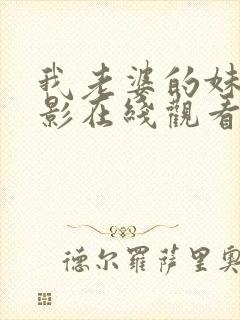 我老婆的妹
影在綫觀看
德尔羅萨里奥